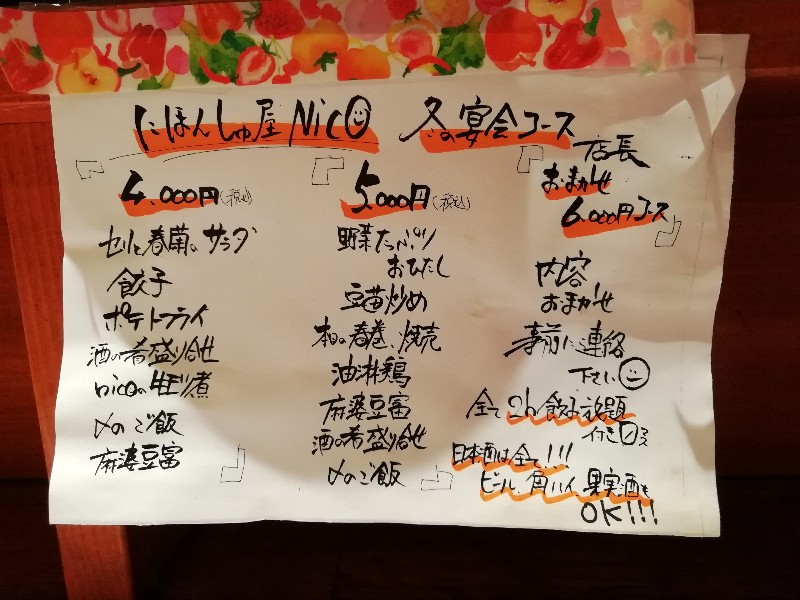 にほんしゅ屋 Nico 冬の宴会コース
4,000円(税込)
セリと春菊のサラダ
餃子
ポテトフライ
酒の肴盛り合せ
nicoの牛モツ煮
〆のご飯
麻婆豆富
5,000円(税込)
野菜たっぷり
おひたし
豆苗炒め
本日の春巻、焼売
油淋鶏
麻婆豆富
酒の肴盛り合せ
〆のご飯
店長
おまかせ
6,000円コース
内容
おまかせ
事前に連絡
下さい
全て2h飲み放題
付き
日本酒は全て!!!
ビール、角ハイ、果実酒も
OK!!!